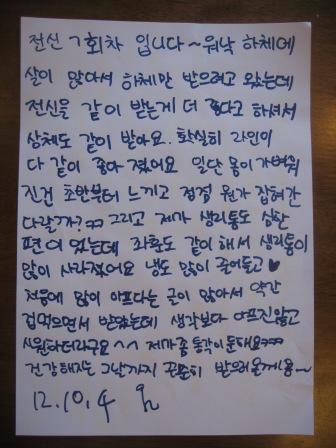 전신 7회차 입니다~ 워낙 하체에
살이 많아서 하체만 받으려고 왔는데
전신을 같이 받는게 더 좋다고 하셔서
상체도 같이 받아요. 확실히 라인이
다 같이 좋아졌어요 일단 몸이 가벼워
진건 초반부터 느끼고 점점 뭔가 잡혀간
다랄까? ㅋㅋ 그리고 제가 생리통도 심한
편이었는데 좌훈도 같이 해서 생리통이
많이 사라졌어요 냉도 많이 줄어들고 ♥
처음에 많이 아프다는 글이 많아서 약간
겁먹으면서 받았는데 생각보다 아프진않고
시원하더라구요 ^^ 제가좀 통각이 둔해요ㅋㅋㅋ
건강해지는 그날까지 꾸준히 받으러올게용~
12.10.4